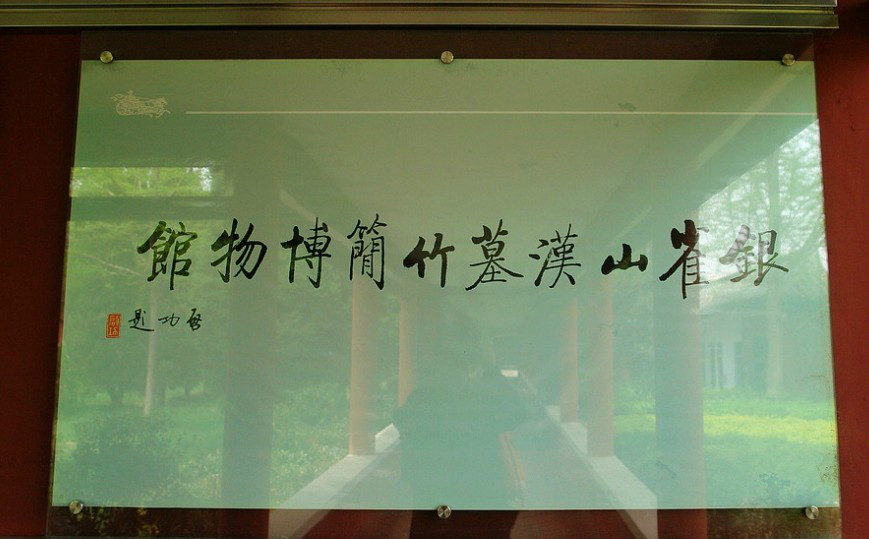 銀雀山漢墓竹簡博物館
啟功題